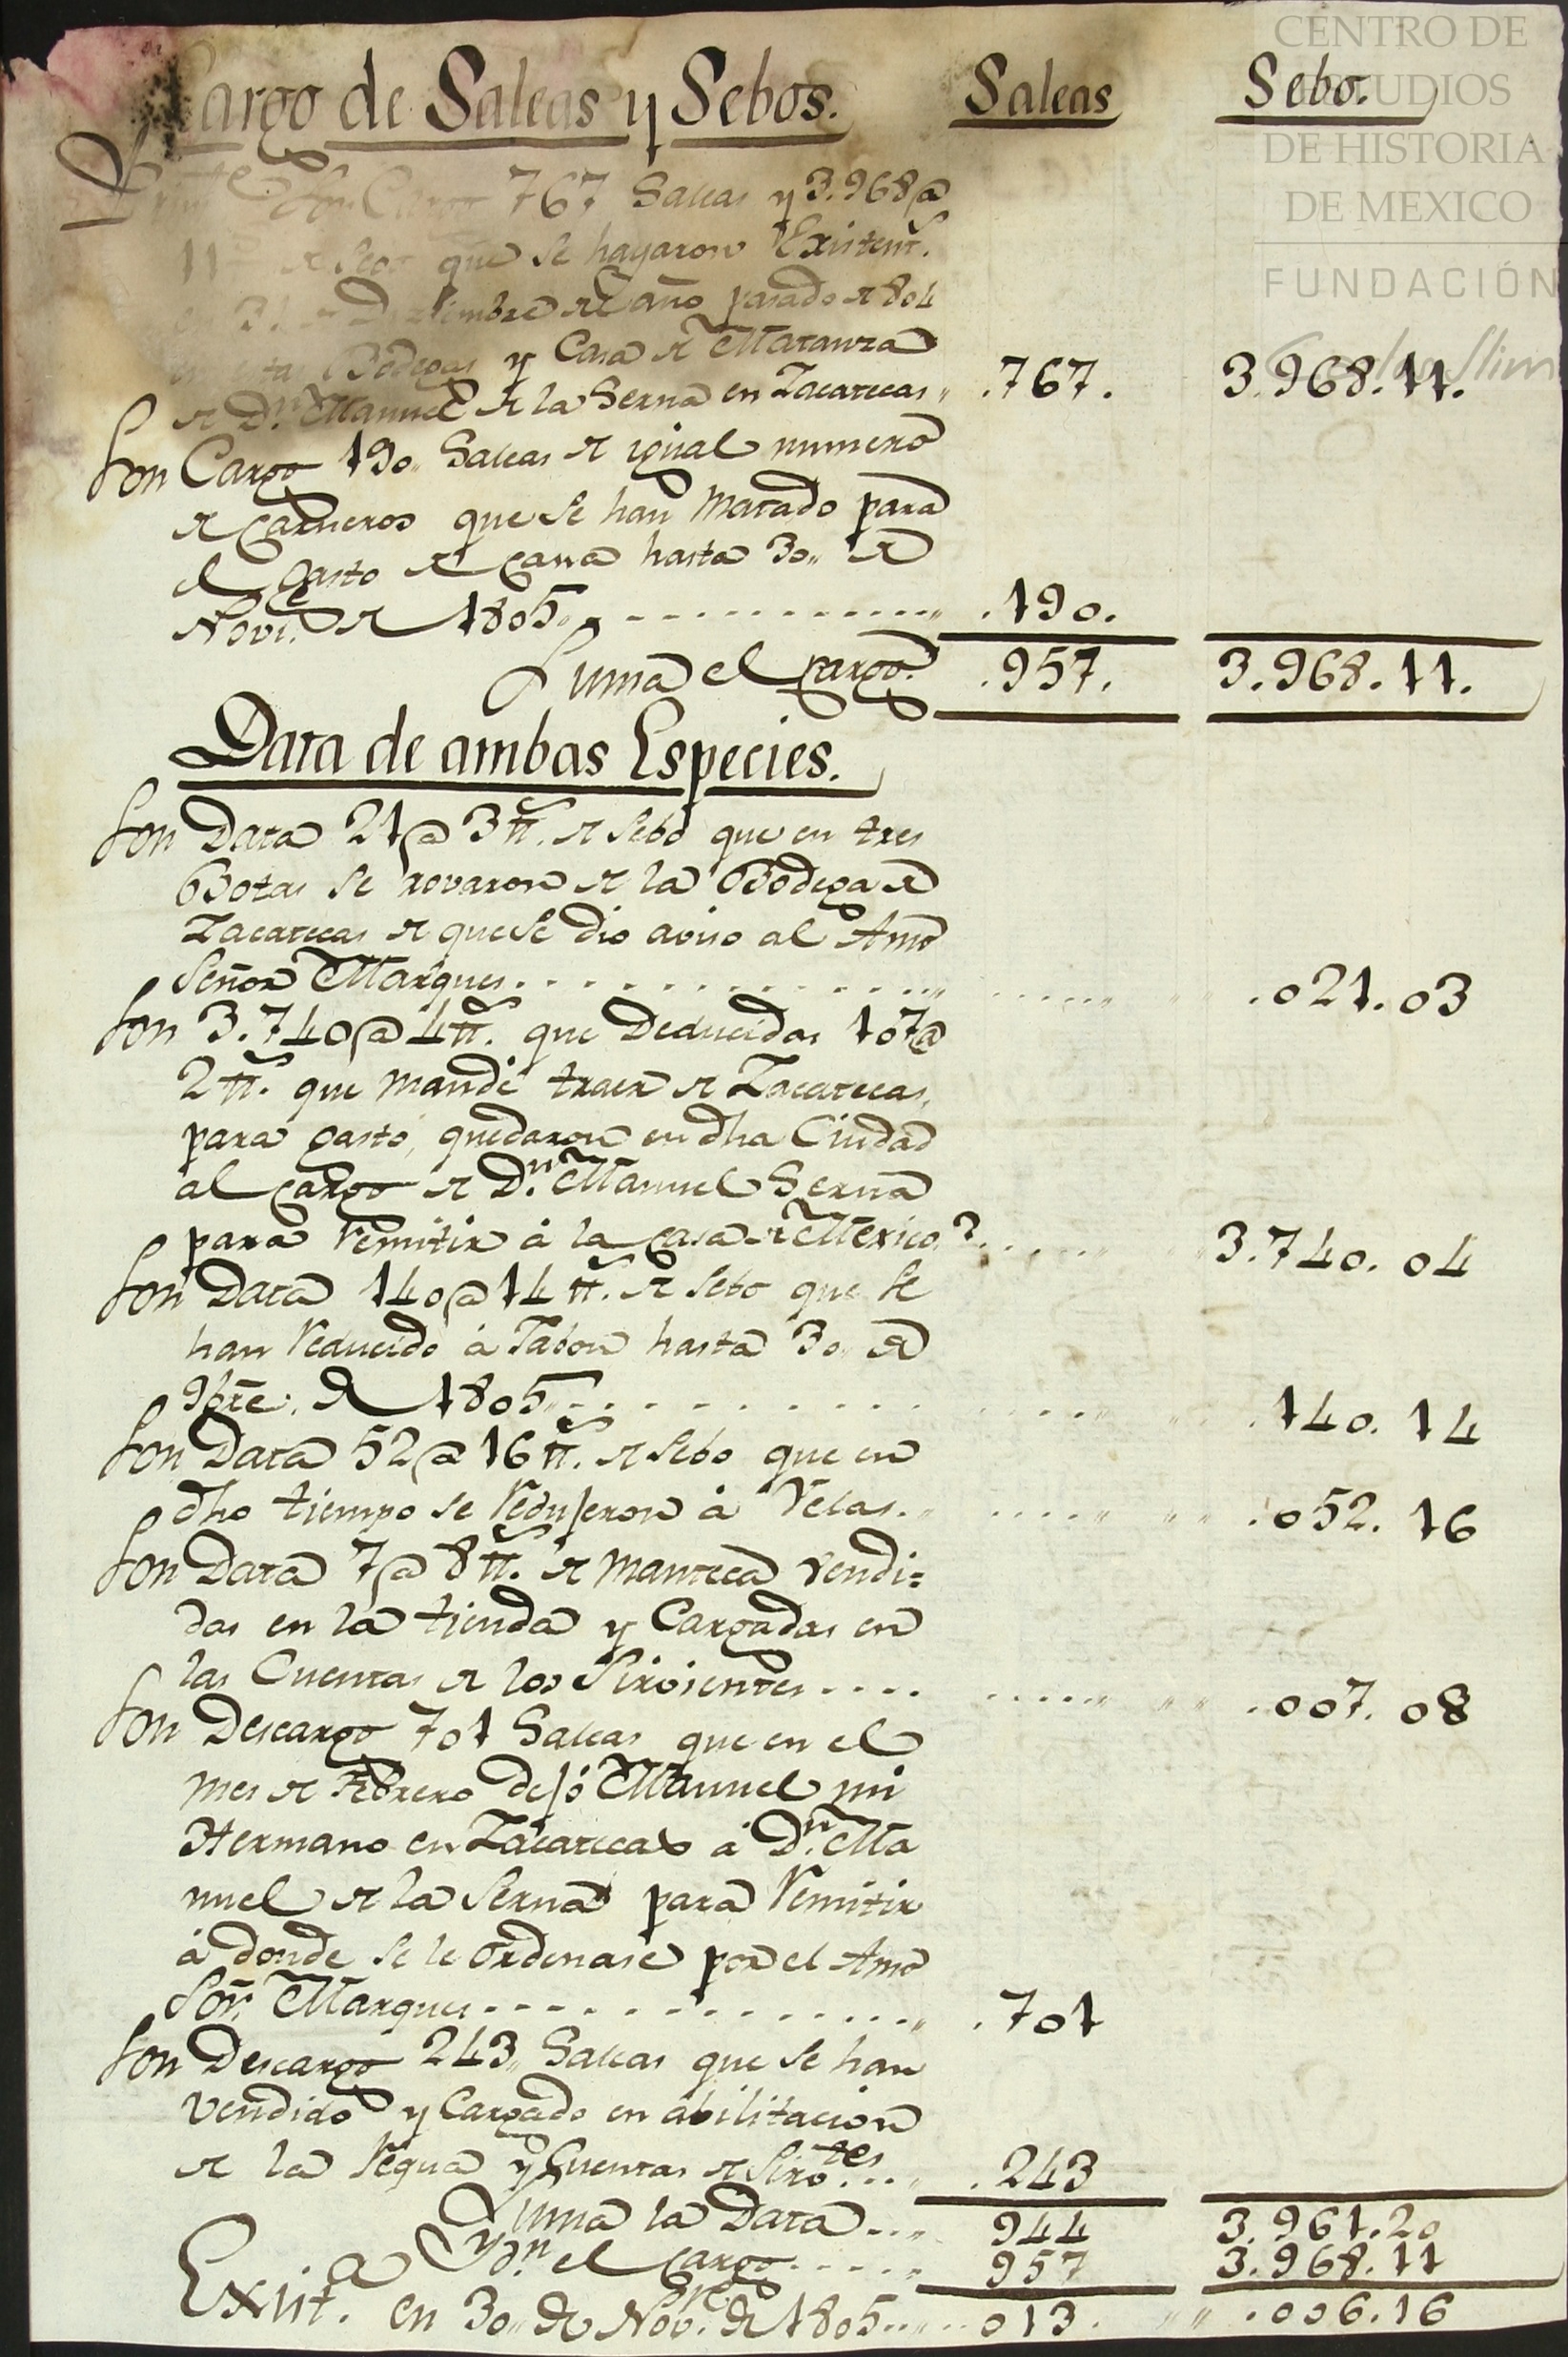 Cargo de Saleas y Sebos. Saleas Sebo.
Son Cargo 767 Saleas y 3.968@
11 de Sebo que se hayaron Existent.s
en 31 de Diziembre del año pasado de 804
en esta Bodegas y Casa de Matanza
de D.n Manuel de la Serna en Zacatecas,, .767. 3.968.11.
Son Cargo 190,, Saleas de igual numero
de Carneros que se han Matado para
el Gasto de Casa hasta 30,, de
Novi.e de 1805,, .190.
Suma el Cargo. .957. 3.968.11.
Data de ambas Especies.
Son Data 21@ 3 tt.s de Sebo que en tres
Botas se rovaron de la Bodega de
Zacatecas de que se dio aviso al Amo
Señor Marques .021.03
Son 3.740@ 4 tt.s que Deducidas 107@
2 tt.s que mandé traer de Zacatecas,
para gasto, quedaron en dha Ciudad
al Cargo de D.n Manuel Serna
para Remitir à la Casa de Mexico. 3.740.04
Son Data 140@ 14 tt.s de Sebo que se
han Reducido à Jabon hasta 30,, de
9bre. de 1805,, .140.14
Son Data 52@ 16 tt.s de Sebo que en
dho tiempo se Redujeron à Velas. .052.16
Son Data 7@ 8 tt.s de Manteca Vendi=
das en la tienda y Cargadas en
las Cuentas de los Sirvientes .007.08
Son Descargo 701 Saleas que en el
mes de Febrero dejó Manuel mi
Hermano en Zacatecas à D.n Ma
nuel de la Serna para Remitir
à donde se le ordenase por el Amo
Sōr. Marques .701
Son Descargo 243,, Saleas que se han
Vendido y Cargado en abilitacion
de la Yegua y Cuentas de Sirv.tes .243
Suma la Data 944 3.961.20
Yd.n el Cargo 957 3.968.11
Exist.a en 30,, de Nov.bre de 1805 013. .006.16
CENTRO DE
ESTUDIOS
DE HISTORIA
DE MEXICO
FUNDACIÓN
Carlos Slim